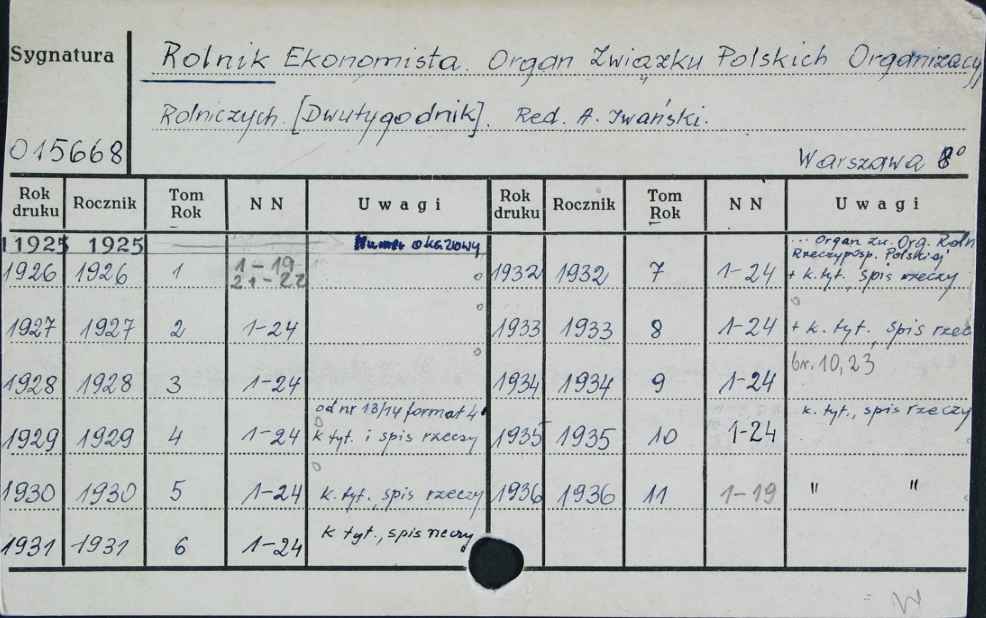 Sygnatura
Rolnik Ekonomista. Organ Związku Polskich Organizacyj
Rolniczych. [Dwutygodnik]. Red. A. Iwański.
015668
Warszawa 8°
Rok druku Rocznik Tom Rok N N Uwagi Rok druku Rocznik Tom Rok N N Uwagi
1925 1925 Numer okazowy
... Organ Zw. Org. Roln
Rzeczyposp. Polskiej
1926 1926 1 1-19 21-22 1932 1932 7 1-24 + k. tyt., spis rzeczy
1927 1927 2 1-24 1933 1933 8 1-24 + k. tyt., spis rzec
br. 10, 23
1928 1928 3 1-24 1934 1934 9 1-24
od nr 13/14 format 4° k. tyt., spis rzeczy
1929 1929 4 1-24 k tyt. i spis rzeczy 1935 1935 10 1-24
1930 1930 5 1-24 k. tyt., spis rzeczy 1936 1936 11 1-19 " "
1931 1931 6 1-24 k tyt., spis rzeczy